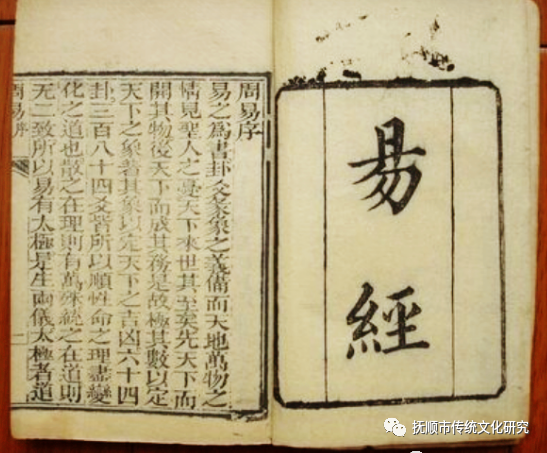 易經
周易序
易之為書卦爻彖象之義備而天地萬物之
情見聖人之憂天下來世其至矣先天下而
開其物後天下而成其務是故極其數以定
天下之象著其象以定天下之吉凶六十四
卦三百八十四爻皆所以順性命之理盡變
化之道也散之在理則有萬殊統之在道則
无二致所以易有太極是生兩儀太極者道
周易序
一
抚顺市传统文化研究